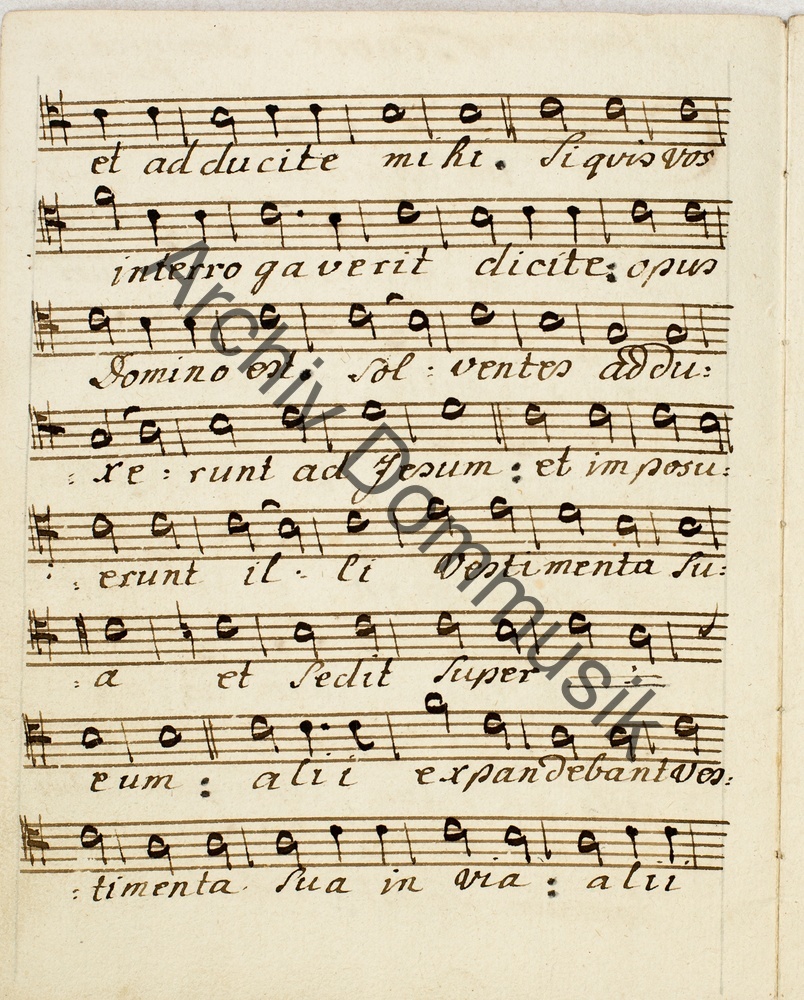 et adducite mihi. Si quis vos
interrogaverit dicite: opus
Domino est. Sol: ventes addu:
: xe: runt ad Jesum: et imposu:
: erunt il- li vestimenta su:
: a et sedit super
eum: alii expandebant ves:
: timenta sua in via: alii
Archiv Dommusik